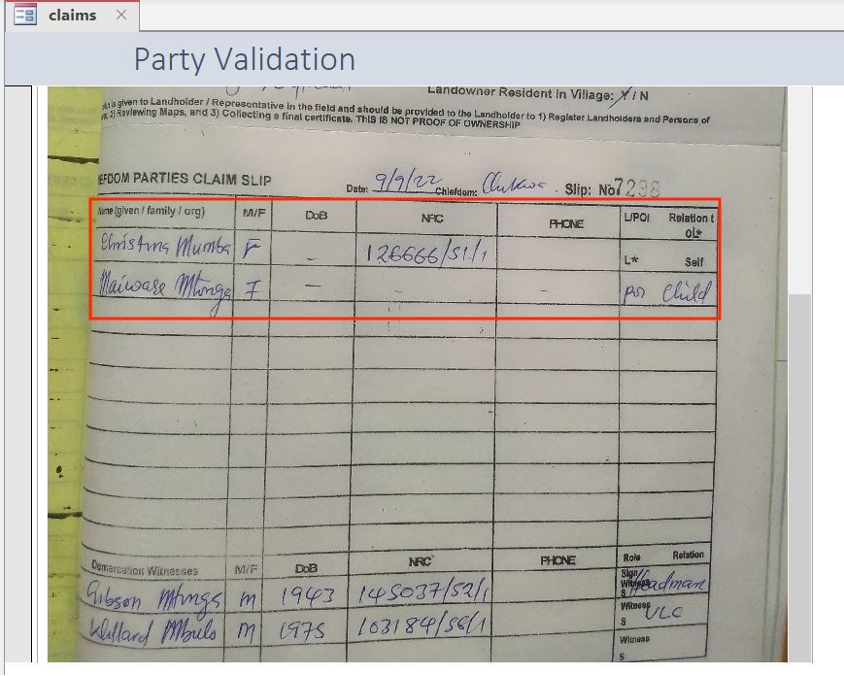 claims
Party Validation
Landowner Resident in Village: Y / N
is given to Landholder / Representative in the field and should be provided to the Landholder to 1) Register Landholders and Persons of
2) Reviewing Maps, and 3) Collecting a final certificate. THIS IS NOT PROOF OF OWNERSHIP
EFDOM PARTIES CLAIM SLIP Date: 9/9/22 Chiefdom: Slip: No 7298
Name (given / family / org) M/F DoB NRC PHONE L/POI Relation t
oL*
Christina Mumba F – 126666/51/1 L* Self
Maiwase Mtonga F – – – POI Child
Demarcation Witnesses M/F DoB NRC PHONE Role Relation
Gibson Mtonga M 1943 145037/52/1 Sign Witness S Headman
M 1975 103184/56/1 Witness S VLC
Witness
S